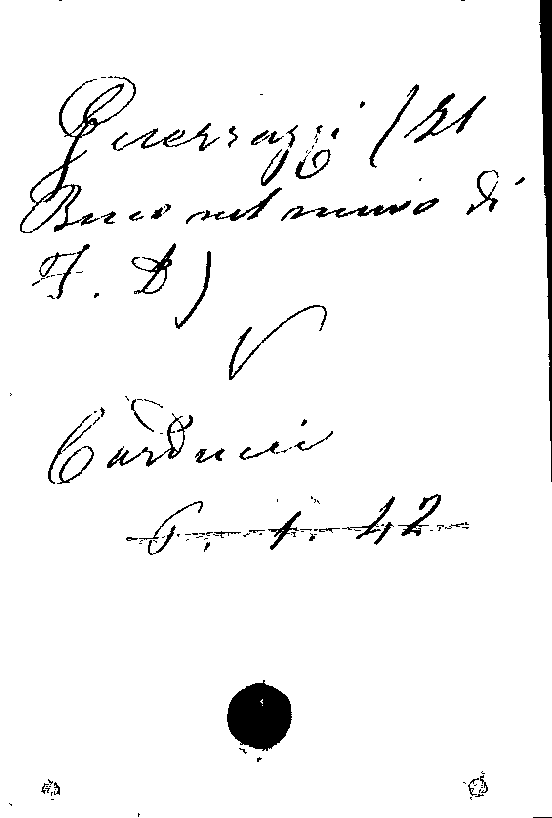 Guerrazzi (Il
Buco nel muro di
F. D)
V
Carducci
6. 1. 42